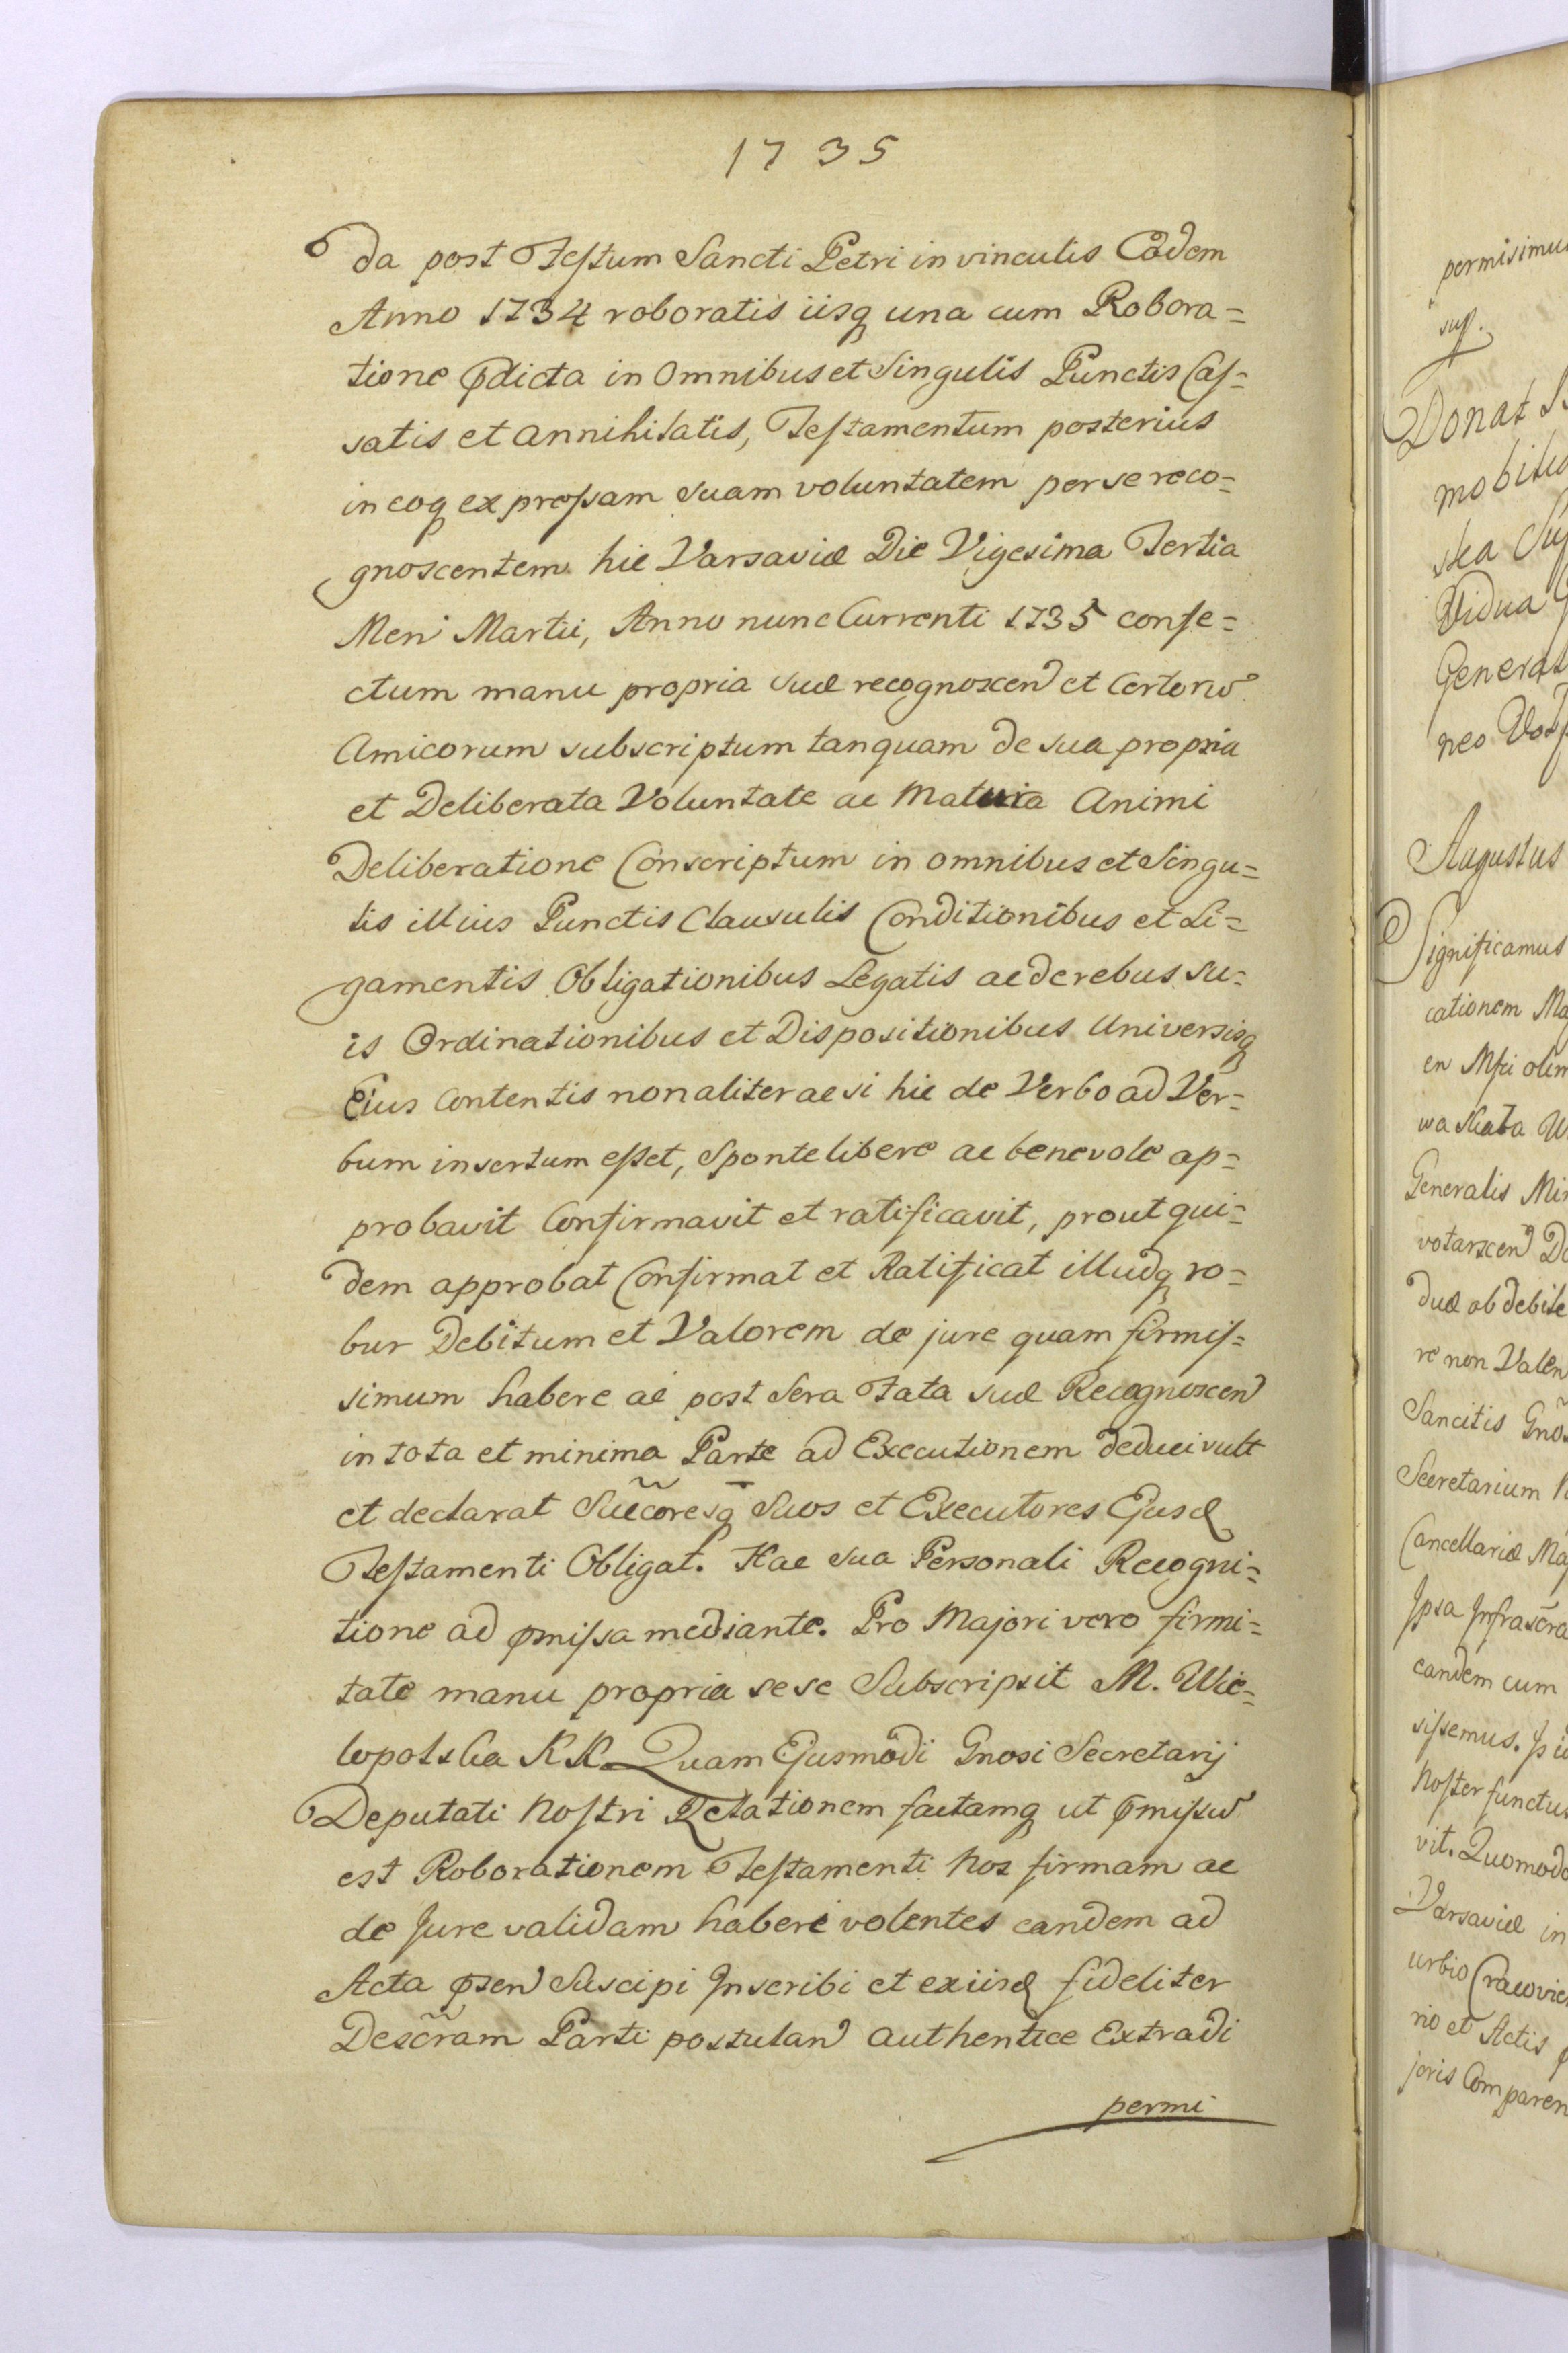 1735
da post Festum Sancti Petri in vinculis Eodem
Anno 1734 roboratis iisq una cum Robora=
tione pdicta in Omnibus et Singulis Punctis Cas=
satis et annihilatis, Testamentum posterius
in eoq expressam suam voluntatem per se reco=
gnoscentem hic Varsaviæ Die Vigesima Tertia
Men Martii, Anno nunc Currenti 1735 confe=
ctum manu propria suæ recognoscen et Certoru
Amicorum subscriptum tanquam de sua propria
et Deliberata Voluntate ac Matura Animi
Deliberatione Conscriptum in omnibus et Singu=
lis illius Punctis Clausulis Conditionibus et Li=
gamentis Obligationibus Legatis ac de rebus su=
is Ordinationibus et Dispositionibus Universisq
Eius Contentis non aliter ac si hic de Verbo ad Ver=
bum insertum esset, Sponte libere ac benevole ap=
probavit Confirmavit et ratificavit, prout qui=
dem approbat Confirmat et Ratificat illudq ro=
bur Debitum et Valorem de jure quam firmis=
simum habere ac post Sera Fata suæ Recognoscen
in tota et minima Parte ad Executionem deduci vult
et declarat Succoresq Suos et Executores Ejusd
Testamenti Obligat. Hac sua Personali Recogni=
tione ad pmissa mediante. Pro Majori vero firmi=
tate manu propria sese Subscripsit M. Wie=
lopolska KK Quam Ejusmodi Gnosi Secretarij
Deputati Nostri Relationem factamq ut pmissu
est Roborationem Testamenti Nos firmam ac
de Jure validam haberi volentes eandem ad
Acta psen Suscipi Inscribi et ex iisd fideliter
Descram Parti postulan authentice Extradi
permi
permisimus
Donat
mobiliu
ska
Vidua
General
neo
Augustus
Significamus
cationem
en Mfci olim
Generalis
duæ ob debile
re non Valen
Sancitis
Secretarium
Cancellariæ
Ipsa Infrascra
eandem cum
sissemus.
Noster functus
vit. Quomodo
Varsaviæ in
urbio Cracovie
rio et Actis
joris Comparen